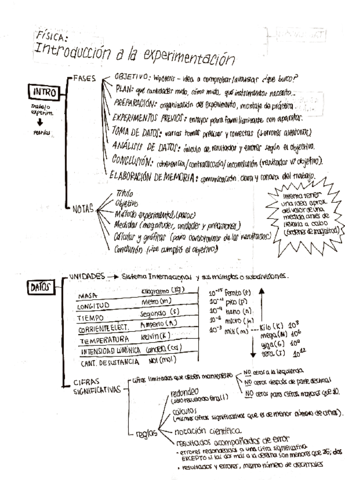 FÍSICA:
Introducción a la experimentación
INTRO
FASES
OBJETIVO: hipótesis - idea a comprobar/ ¿qué busco?
PLAN: qué cantidades mido, cómo, qué instrumentos necesito...
PREPARACIÓN: organización del experimento, montaje de práctica.
EXPERIMENTOS PREVIOS: ensayos para familiarizarte con aparatos.
TOMA DE DATOS: varias tomas
ANÁLISIS DE DATOS: cálculo de resultados y errores según el objetivo.
CONCLUSIÓN:
ELABORACIÓN DE MEMORIA: comunicación clara y concisa del trabajo.
NOTAS
Título
Objetivo
Método experimental
Medidas (magnitudes, unidades y precisiones)
Calcular y gráficos
Conclusión (¿se cumplió el objetivo?)
Interesa tener
una idea aprox.
del valor de una
medida antes de
llevarla a cabo
(orden de magnitud)
DATOS
UNIDADES → Sistema Internacional y sus múltiplos o subdivisiones.
MASA Kilogramo (kg)
LONGITUD Metro (m)
TIEMPO Segundo (s)
CORRIENTE ELECT. Amperio (A)
TEMPERATURA Kelvin (K)
INTENSIDAD LUMÍNICA Candela (ca)
CANT. DE SUSTANCIA Mol (mol)
10⁻¹⁵ Femto (f)
10⁻¹² pico (p)
10⁻⁹ nano (n)
10⁻⁶ micro (μ)
10⁻³ mili (m)
Kilo (K) 10³
mega (M) 10⁶
giga (G) 10⁹
tera (T) 10¹²
CIFRAS
SIGNIFICATIVAS
Cifras limitadas que deben mantenerse
NO ceros a la izquierda
NO ceros después de parte decimal
NO ceros para cifras mayores que 10.
reglas
redondeo
(solo resultado final!)
cálculo:
(mismas cifras significativas que el de menor número de cifras).
notación científica
resultados acompañados de error
- errores redondeados a una cifra significativa
EXCEPTO si las dos más a la derecha son menores que 25; dos
- resultados y errores, mismo número de decimales